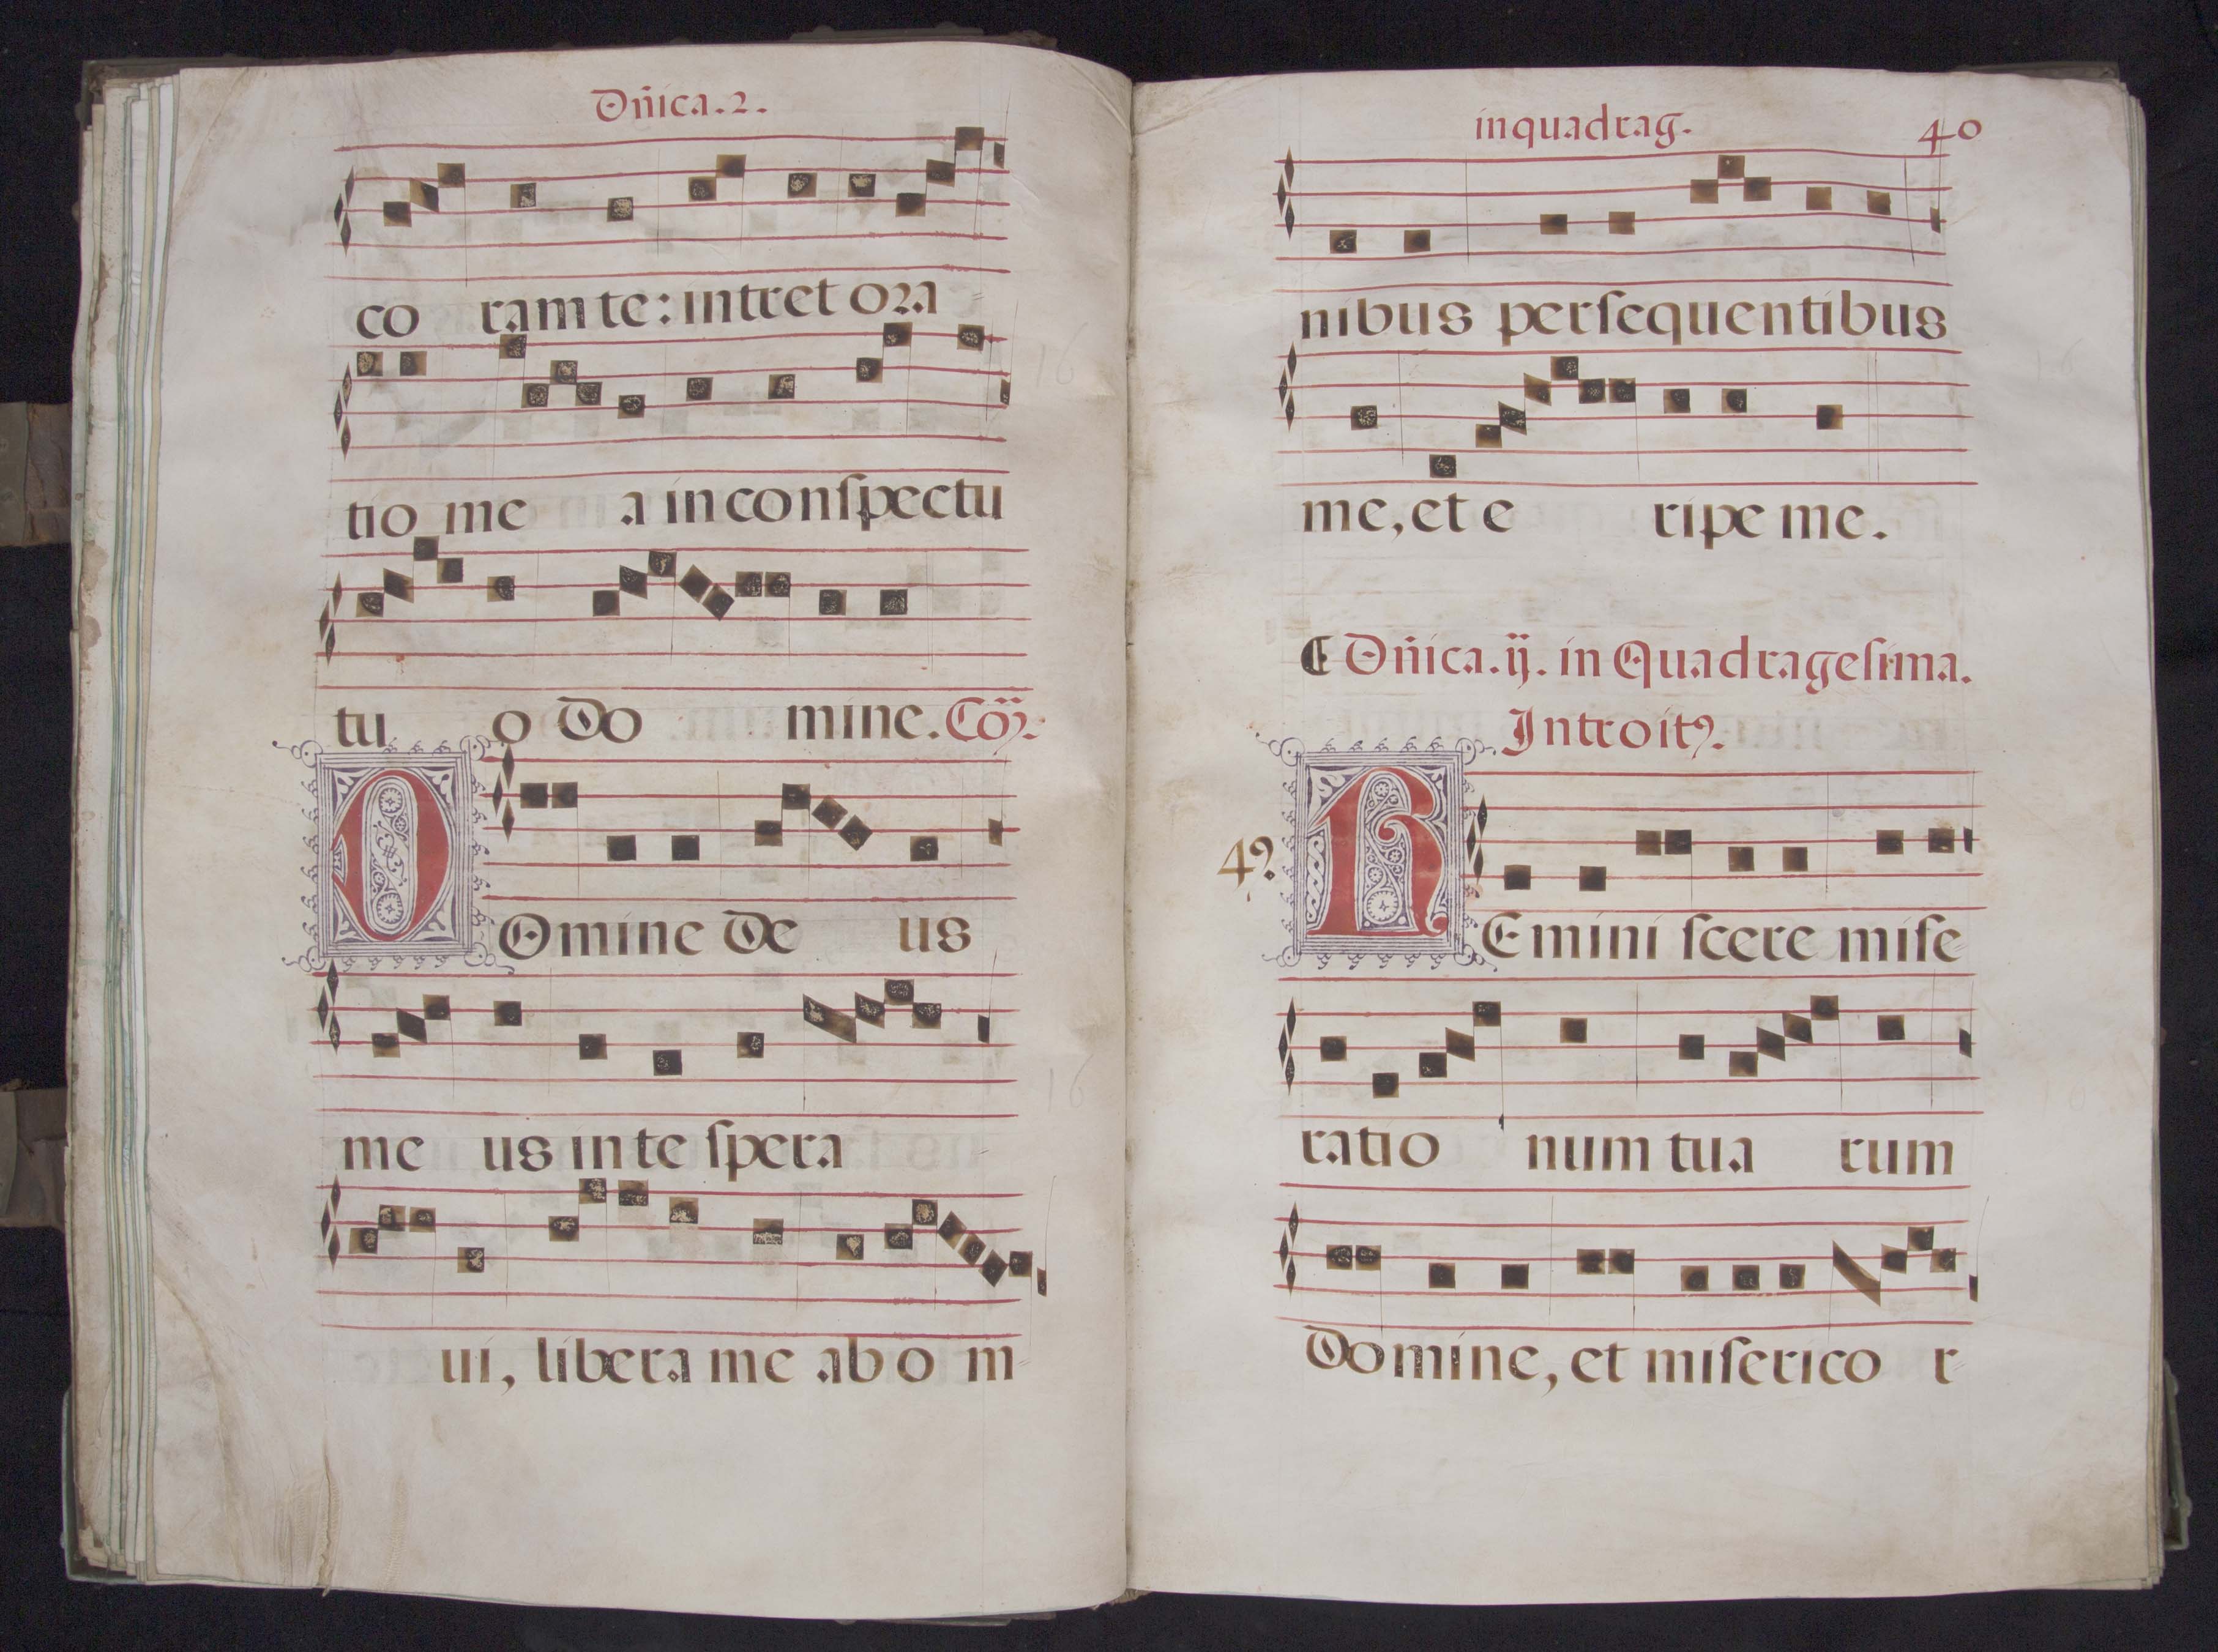 Dñica.2.
co ram te: intret ora
tio me a in conſpectu
tu o Do mine. Cõ.
DOmine De us
me us in te ſpera
ui, libera me ab o m
in quadrag. 40
nibus perſequentibus
me, et e ripe me.
Dñica.ij. in Quadrageſima.
Introitꝯ.
4ꝯ. REmini ſcere miſe
ratio num tua rum
Domine, et miſerico r